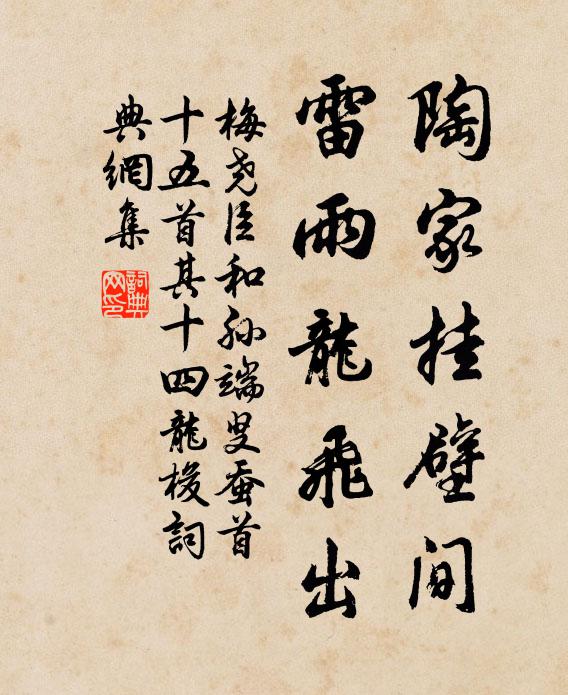 陶家挂壁间
雷雨龍飛出
梅尧臣和孙端叟蚕首
十五首其十四龍梭詞
典網集
詞典网印